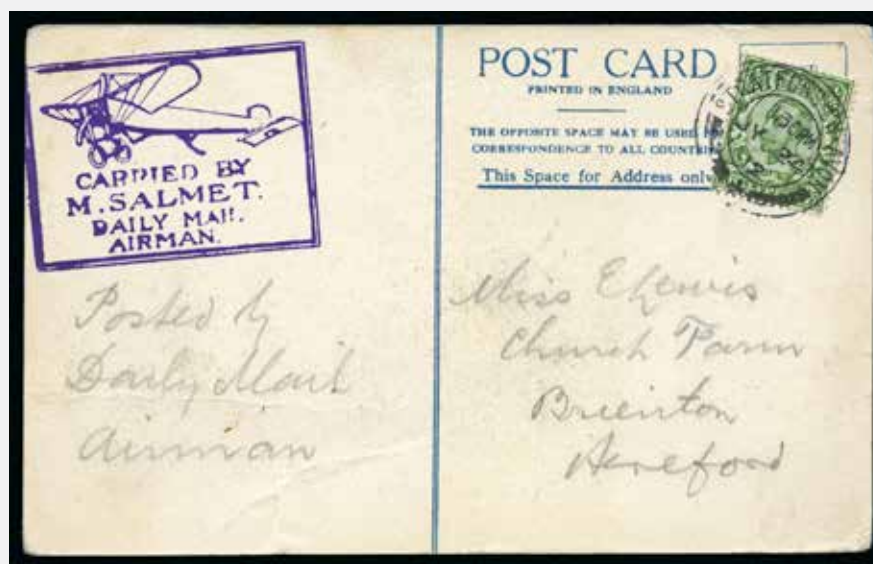 CARRIED BY
M. SALMET.
DAILY MAIL.
AIRMAN.
Posted by
Daily Mail
Airman
POST CARD
PRINTED IN ENGLAND
THE OPPOSITE SPACE MAY BE USED
CORRESPONDENCE TO ALL
This Space for Address only
Miss E Lewis
Church Farm
Hereford